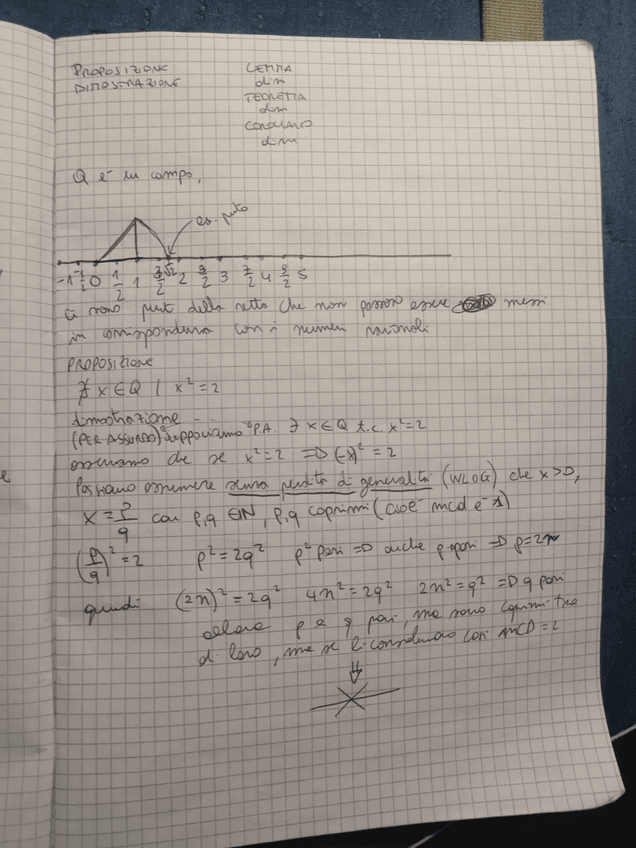 PROPOSIZIONE
DIMOSTRAZIONE
LEMMA
dim
TEOREMA
dim
COROLLARIO
dim
Q è un campo.
es. punto
-1 -1/2 0 1/2 1 3/2 √2 2 5/2 3 7/2 4 9/2 5
Ci sono punti della retta che non possono essere messi
in corrispondenza con i numeri razionali
PROPOSIZIONE
∄ x ∈ Q | x² = 2
dimostrazione
(PER ASSURDO) Supponiamo P.A. ∃ x ∈ Q t.c. x² = 2
osserviamo che se x² = 2 => (-x)² = 2
Possiamo assumere senza perdita di generalità (WLOG) che x > 0,
x = p/q con p,q ∈ IN, p,q coprimi (cioè mcd è 1)
(p/q)² = 2 p² = 2q² p² pari => anche p pari => p = 2n
quindi (2n)² = 2q² 4n² = 2q² 2n² = q² => q pari
allora p e q pari, ma sono coprimi tra
di loro, ma se li considerano con MCD = 2
⇓